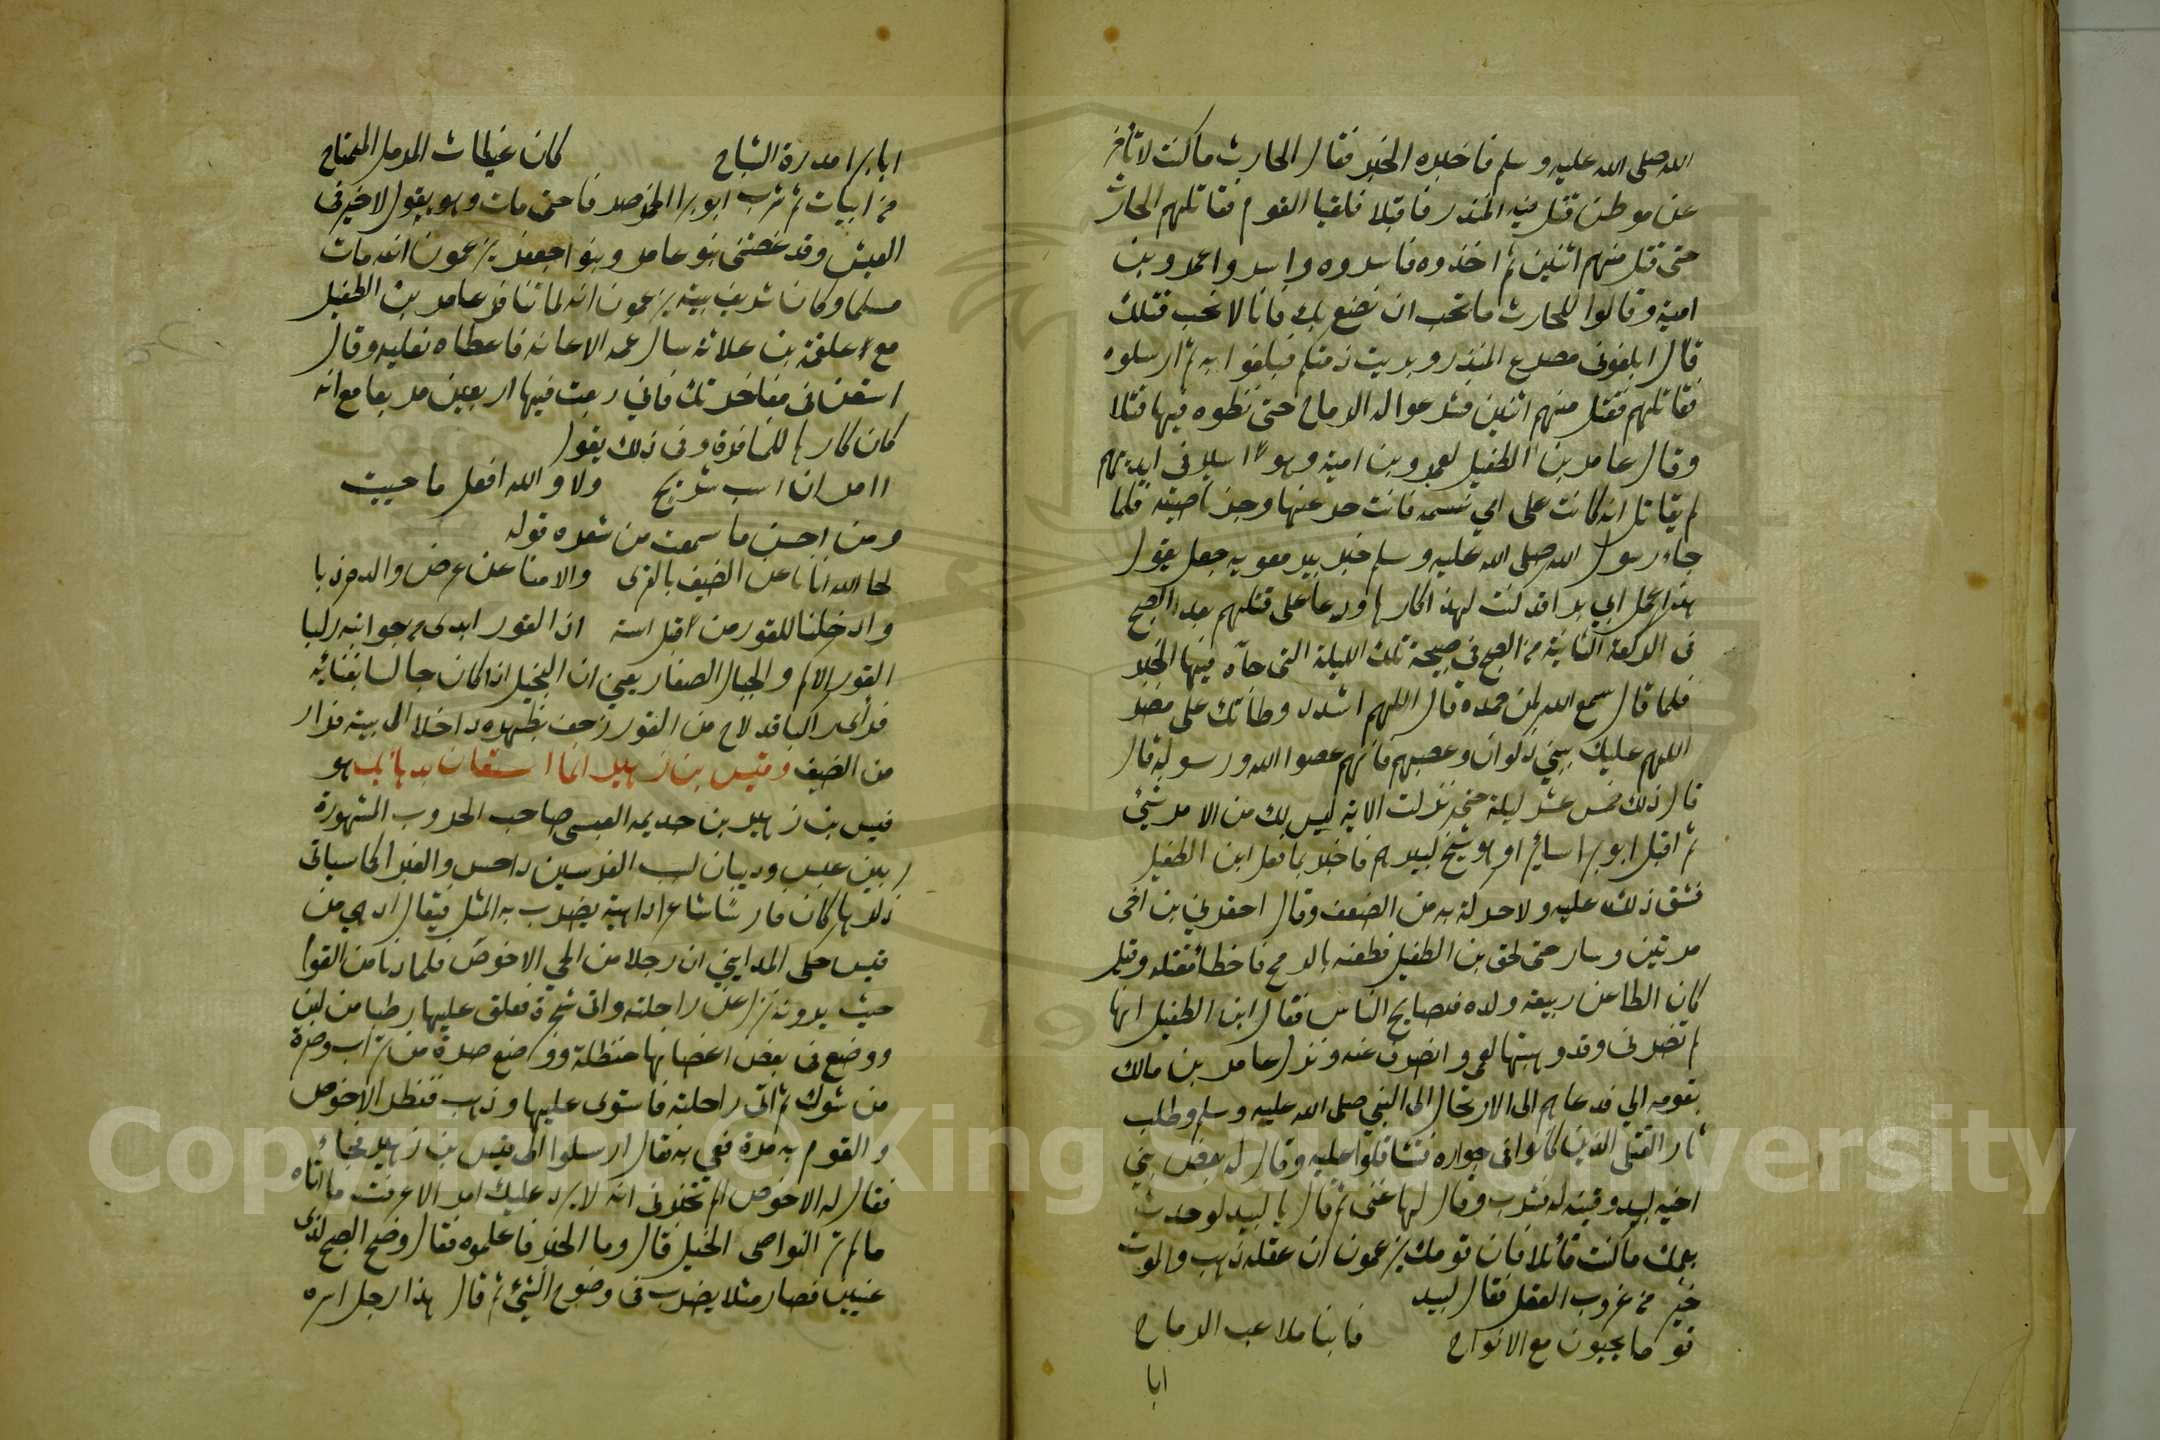 الله صلى الله عليه وسلم فاخبره الخبر فقال الحارث ما كنت لاتأخر
عن موطن قتل فيه المنذر فاقبلا فلقيا القوم فقاتلهم الحارث
حتى قتل منهم اثنين ثم اخذوه فاسروه واسروا عمرو بن
امية وقالوا للحارث ما تحب ان نصنع بك فانا لا نحب قتلك
قال ابلغوني مصرع المنذر وبريت ذمتكم فبلغوا به ثم ارسلوه
فقاتلهم فقتل منهم اثنين فشرعوا له الرماح حتى نظموه فيها قتلا
وقال عامر بن الطفيل لعمرو بن امية وهو اسير في ايديهم
لم يقاتل انه كانت على امي نسمة فانت حر عنها وجز ناصيته فلما
جاء رسول الله صلى الله عليه وسلم خبر بير معونة جعل يقول
هذا عمل ابي برا قد كنت لهذا كارها ودعا على قتلتهم بعد الصبح
في الركعة الثانية من الصبح في صبيحة تلك الليلة التي جاه فيها الخبر
فلما قال سمع الله لمن حمده قال اللهم اشدد وطاتك على مضر
اللهم عليك ببني ذكوان وعصيهم فانهم عصوا الله ورسوله قال
قال ذلك خمس عشر ليلة حتى نزلت الاية ليس لك من الامر شئ
ثم اقبل ابو برا سايرا وهو شيخ كبير هم فاخبر بما فعل ابن الطفيل
فشق ذلك عليه ولا حركة به من الضعف وقال احقرني بن اخي
مرتين وسار حتى لحق بن الطفيل فطعنه بالرمح فاخطأ مقتله وقيل
كان الطاعن ربيعة ولده فتصايح الناس فقال ابن الطفيل انها
لم تضرني وقد وهبتها لعمي وانصرف عنه ونزل عامر بن مالك
بقومه فدعاهم الى الارتحال الى النبي صلى الله عليه وسلم وطلب
ثار القتلى الذين كانوا في جواره فتثاقلوا عليه وقال له بعض بني
اخيه لبيد وقينة له فشرب وقال لها غني ثم قال يا لبيد لو حدث
بعمك ما كنت قائلا فان قومك يزعمون ان عقله ذهب والموت
خير من غروب العقل فقال لبيد
قوما يجيبون مع الانواح فابنا ملاعب الرماح
ابا
ابا برا مدرة الشياح كان غياث المرمل الممتاح
من ابيات ثم شرب ابو برا الخمر صرفا حتى مات وهو يقول لا خير في
العيش وقد عصتني بنو عامر وبنوا جعفر يزعمون انه مات
مسلما وكان شريف بيته يزعمون انه لما تنافر عامر بن الطفيل
مع علقمة بن علاثة سال عمه الاعانة فاعطاه نعليه وقال
استعن في مفاخرتك فاني ربعت فيها اربعين مرباعا مع انه
كان كارها للمنافرة وفي ذلك يقول
اامر ان اسب شريح ولا والله افعل ما حييت
ومن احسن ما سمعت من شعره قوله
لحا الله انانا عن الضيف بالقرى والامنا عن عرض والده ذبا
وادخلنا للقور من قبل استه اذا القور ابدى من جوانبه ركبا
القور الاكم والجبال الصغار يعني ان البخيل اذا كان جالسا بفنائه
فراى راكبا قد لاح من القور زحف بظهره داخلا الى بيته فرار
من الضيف وقيس بن زهير انما استعان بدهائك هو
قيس بن زهير بن جديمه العبسي صاحب الحروب المشهورة
بين عبس وذبيان بسبب الفرسين داحس والغبرا كما سياتي
ذكرها كان فارسا شاعرا داهية يضرب به المثل فيقال ادهى من
قيس حكى المدايني ان رجلا من الحي الاخوص فلما دنا من القوم
حيث يرونه نزل عن راحلته واتى شجرة فعلق عليها رطبا من لبن
ووضع في بعض اغصانها حنظلة ووضع صرة من تراب وصرة
من شوك ثم اتى راحلته فاستوى عليها وذهب فنظر الاخوص
والقوم به مرة فعي به فقال ارسلوا الى قيس بن زهير فجاء
فقال له الاخوص الم تخبرني انه لا يرد عليك امر الا عرفت ما اتاه
ما لم تر النواصي الخيل قال وما الخبر فاعلموه فقال وضح الصبح لذى
عينين فصار مثلا يضرب في وضوح الشئ ثم قال هذا رجل اسره